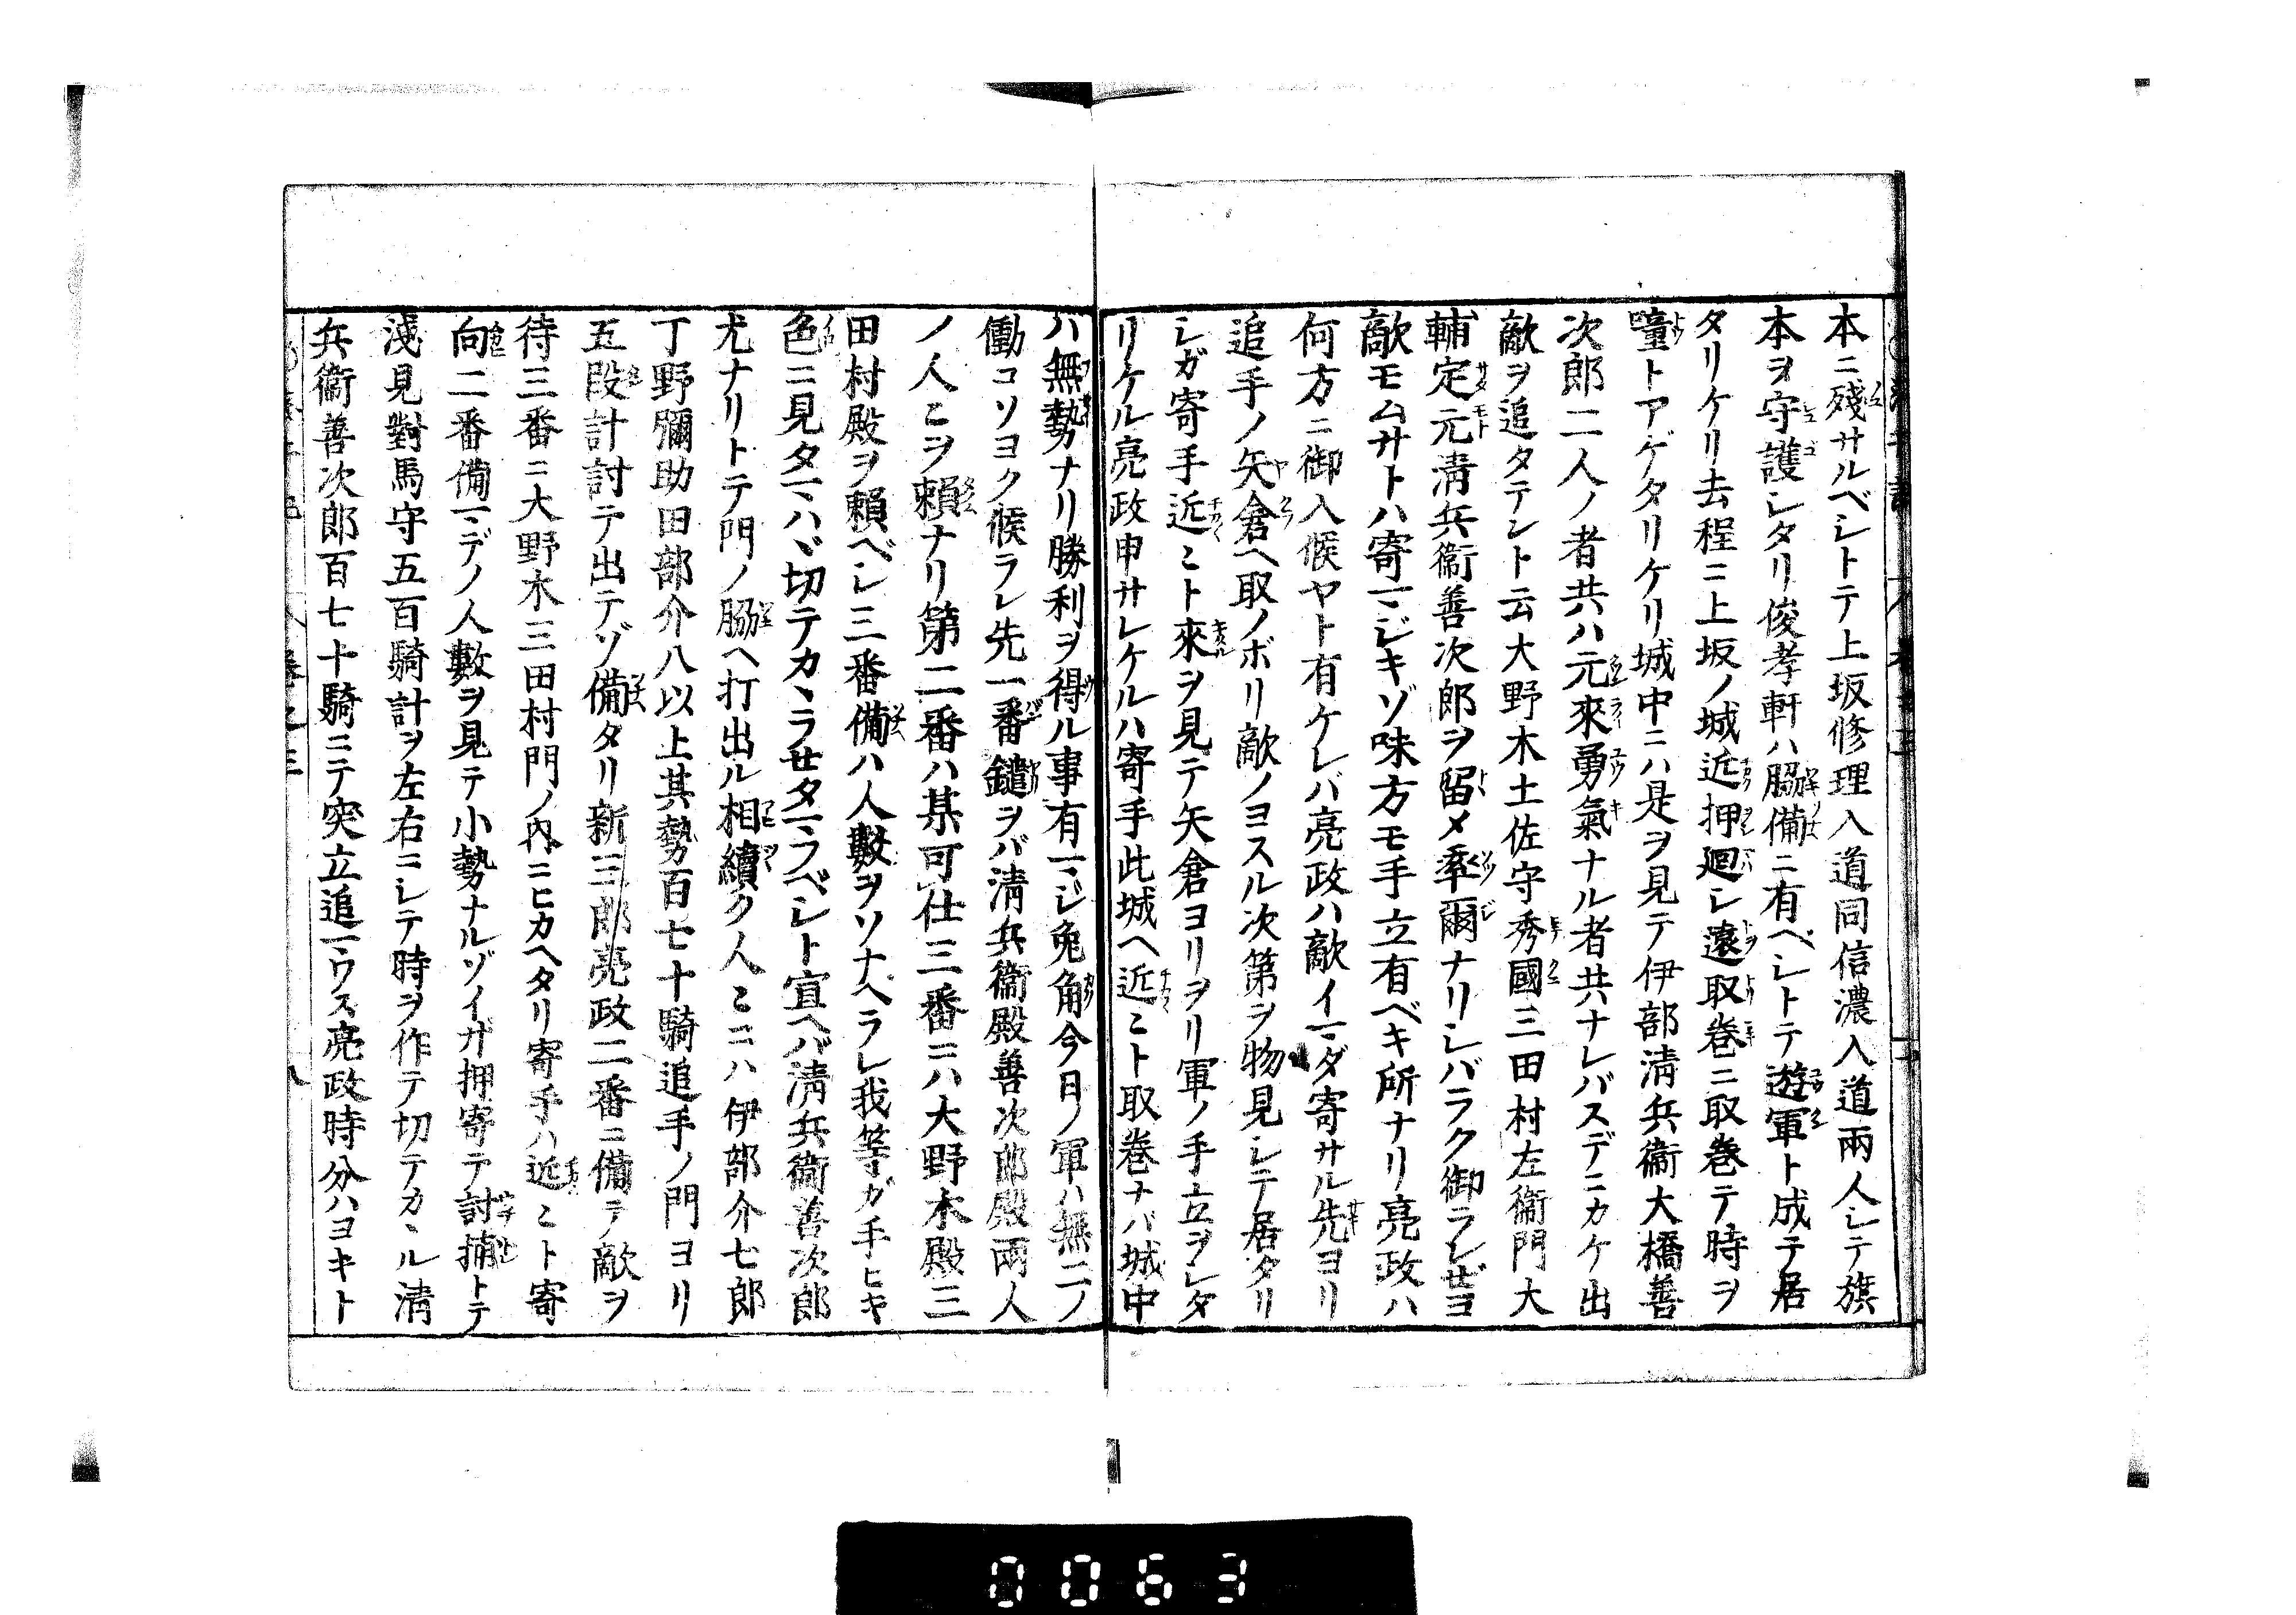 本ニ殘サルベシトテ上坂修理入道同信濃入道兩人シテ旗
本ヲ守護シタリ俊孝軒ハ脇備ニ有ベシトテ遊軍ト成テ居
タリケリ去程ニ上坂ノ城近押廻シ遠取巻ニ取巻テ時ヲ
瞳トアゲタリケリ城中ニハ是ヲ見テ伊部淸兵衞大橋善
次郎二人ノ者共ハ元來勇氣ナル者共ナレバスデニカケ出
敵ヲ追タテント云大野木土佐守秀國三田村左衞門大
輔定元淸兵衞善次郎ヲ留メ率爾ナリシバラク御ラレゼヨ
敵モムサトハ寄マジキゾ味方モ手立有ベキ所ナリ亮政ハ
何方ニ御入候ヤト有ケレバ亮政ハ敵イマダ寄サル先ヨリ
追手ノ矢倉ヘ取ノボリ敵ノヨスル次第ヲ物見シテ居タリ
シガ寄手近〻ト來ヲ見テ矢倉ヨリヲリ軍ノ手立ヲシタ
リケル亮政申サレケルハ寄手此城ヘ近〻ト取巻ナバ城中
ハ無勢ナリ勝利ヲ得ル事有マジ兔角今日ノ軍ハ無二ノ
働コソヨク候ラレ先一番鑓ヲバ淸兵衞殿善次郎殿兩人
ノ人〻ヲ賴ナリ第二番ハ某可仕三番ニハ大野木殿三
田村殿ヲ賴ベシ三番備ハ人數ヲソナヘラレ我等ガ手ヒキ
色ニ見タマハヾ切テカヽラセタマフベシト宣ヘバ淸兵衞善次郎
尤ナリトテ門ノ脇ヘ打出ル相續ク人〻ニハ伊部介七郎
丁野彌助田部介八以上其勢百七十騎追手ノ門ヨリ
五段計討テ出テゾ備タリ新三郎亮政二番ニ備テ敵ヲ
待三番ニ大野木三田村門ノ内ニヒカヘタリ寄手ハ近〻ト寄
向二番備マデノ人數ヲ見テ小勢ナルゾイザ押寄テ討捕トテ
淺見對馬守五百騎計ヲ左右ニシテ時ヲ作テ切テカヽル淸
兵衞善次郎百七十騎ニテ突立追マワス亮政時分ハヨキト
0063